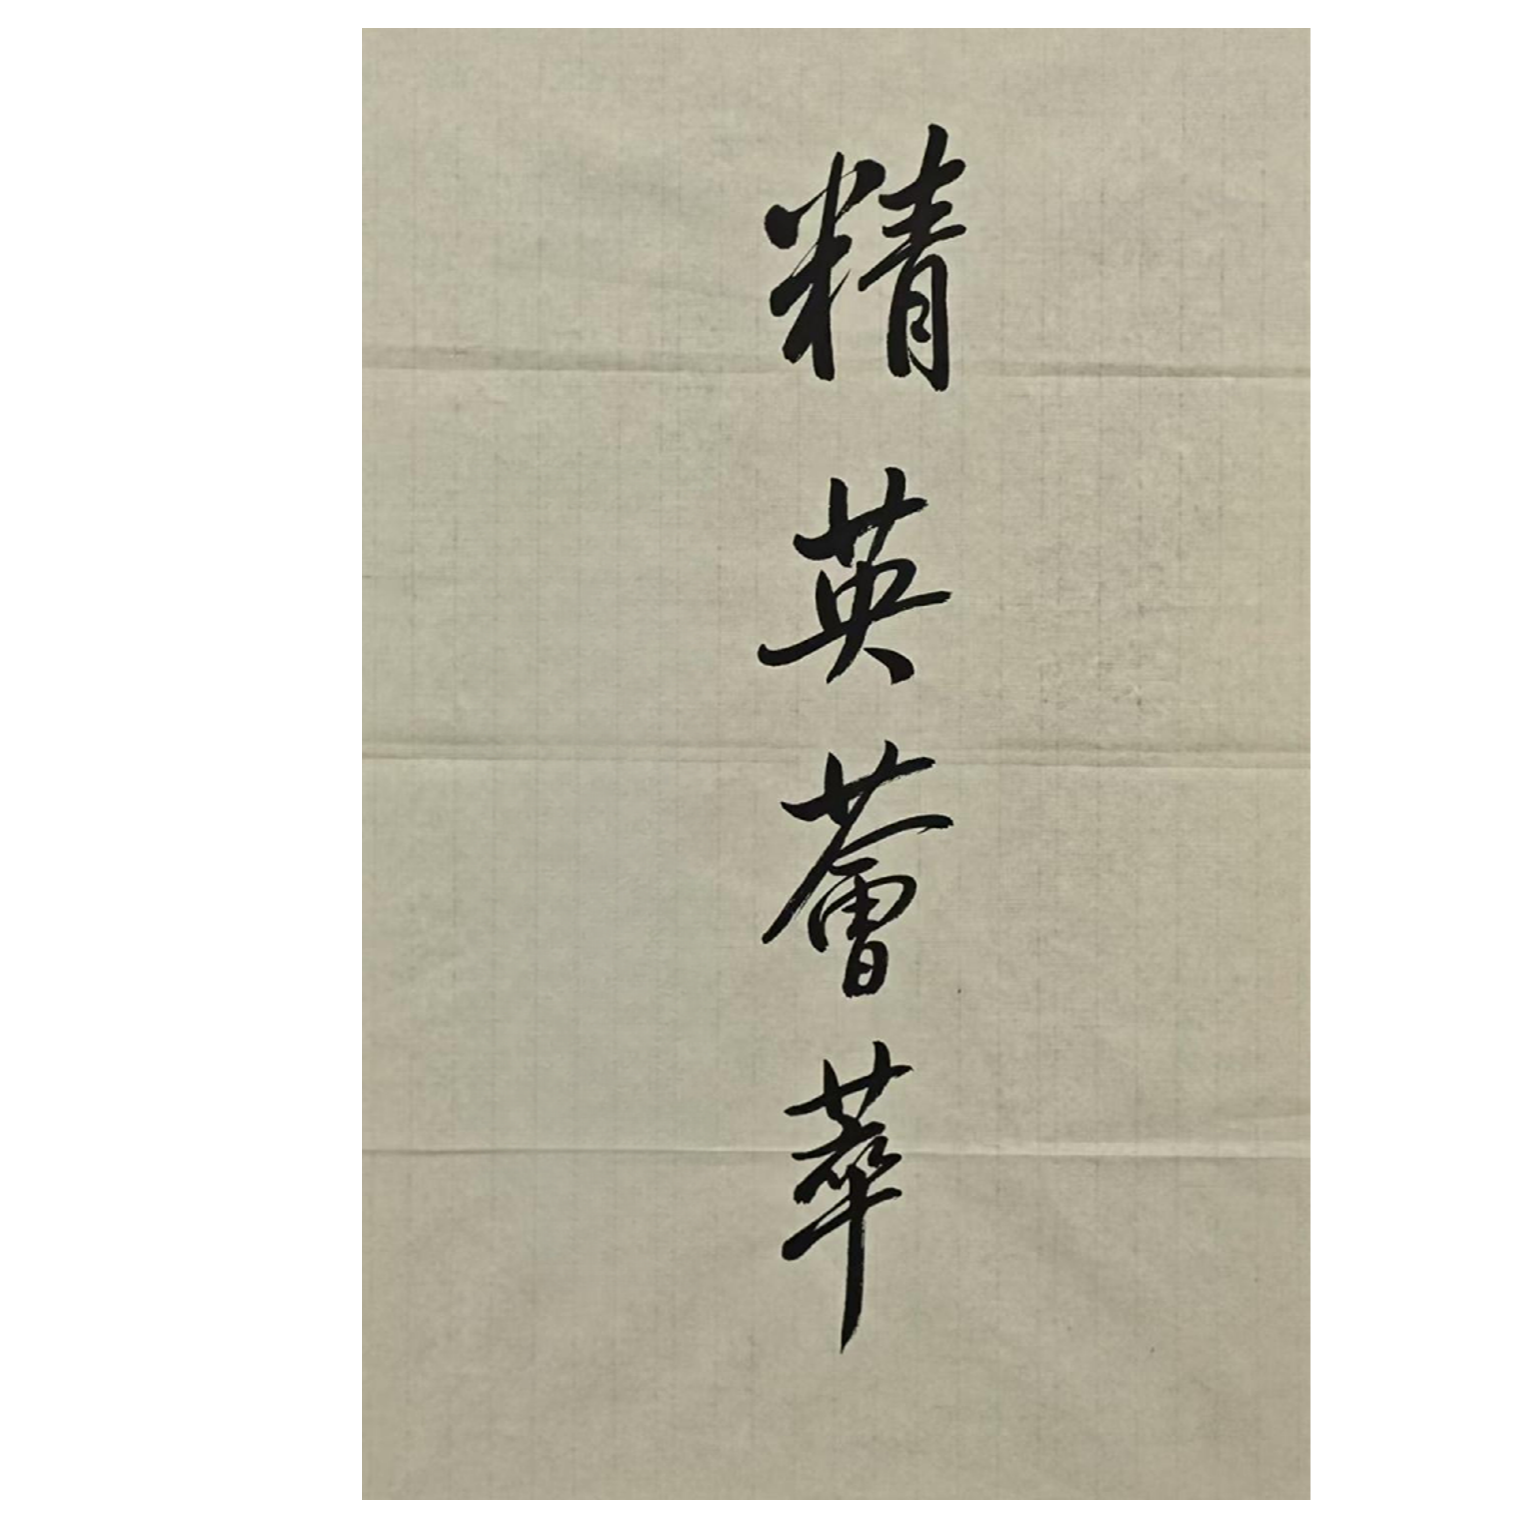 精英薈萃